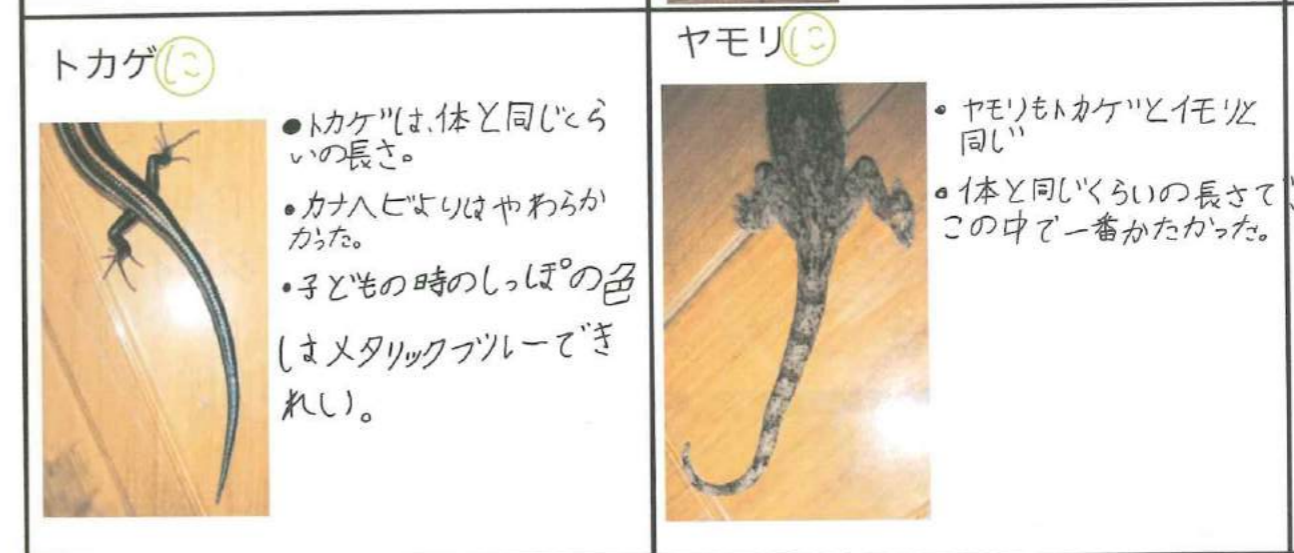 トカゲに
●トカゲは、体と同じくら
いの長さ。
・カナヘビよりはやわらか
かった。
・子どもの時のしっぽの色
はメタリックブルーでき
れい。
ヤモリに
・ヤモリもトカゲとイモリと
同じ
・体と同じくらいの長さで
この中で一番かたかった。